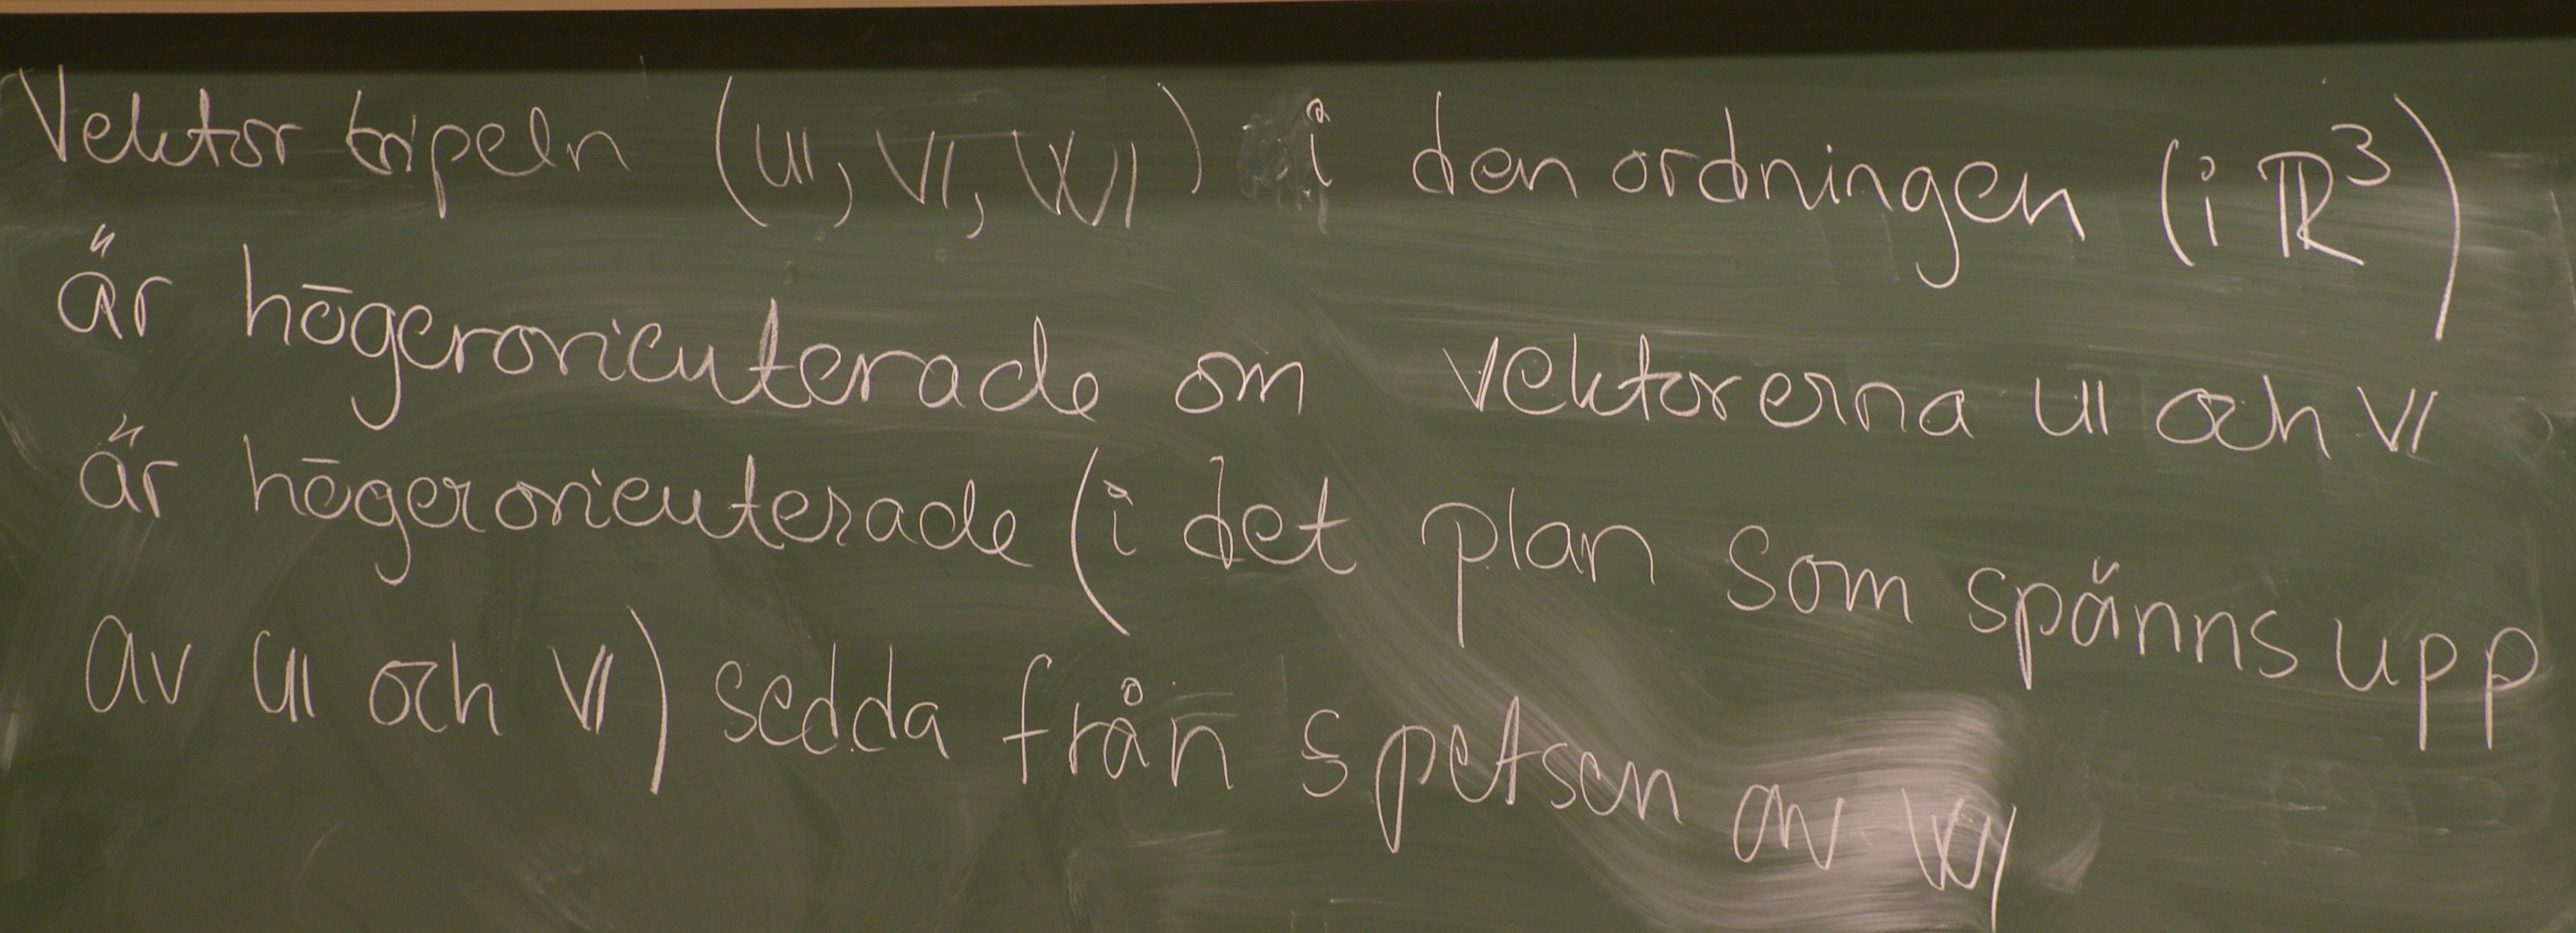 Vektortripeln (𝕦, 𝕧, 𝕨) i den ordningen (i ℝ³)
är högerorienterade om vektorerna 𝕦 och 𝕧
är högerorienterade (i det plan som spänns upp
av 𝕦 och 𝕧) sedda från spetsen av 𝕨